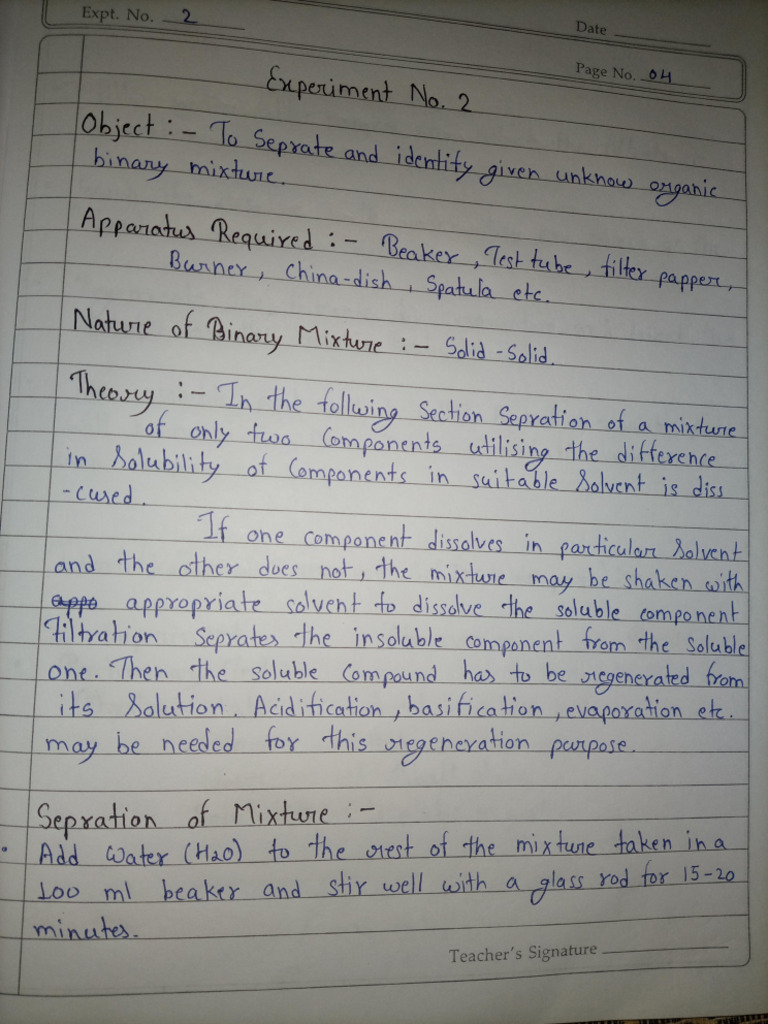 Expt. No. 2
Date
Page No. 04
Experiment No. 2
Object :- To Seprate and identify given unknow organic
binary mixture.
Apparatus Required :- Beaker, Test tube, filter papper,
Burner, China-dish, Spatula etc.
Nature of Binary Mixture :- Solid-Solid.
Theory :- In the follwing Section Sepration of a mixture
of only two Components utilising the difference
in Solubility of Components in suitable Solvent is diss
-cused.
If one component dissolves in particular Solvent
and the other does not, the mixture may be shaken with
appo appropriate solvent to dissolve the soluble component
Filtration Seprates the insoluble component from the soluble
one. Then the soluble Compound has to be regenerated from
its Solution. Acidification, basification, evaporation etc.
may be needed for this regeneration purpose.
Sepration of Mixture :-
• Add Water (H2O) to the rest of the mixture taken in a
100 ml beaker and stir well with a glass rod for 15-20
minutes.
Teacher's Signature